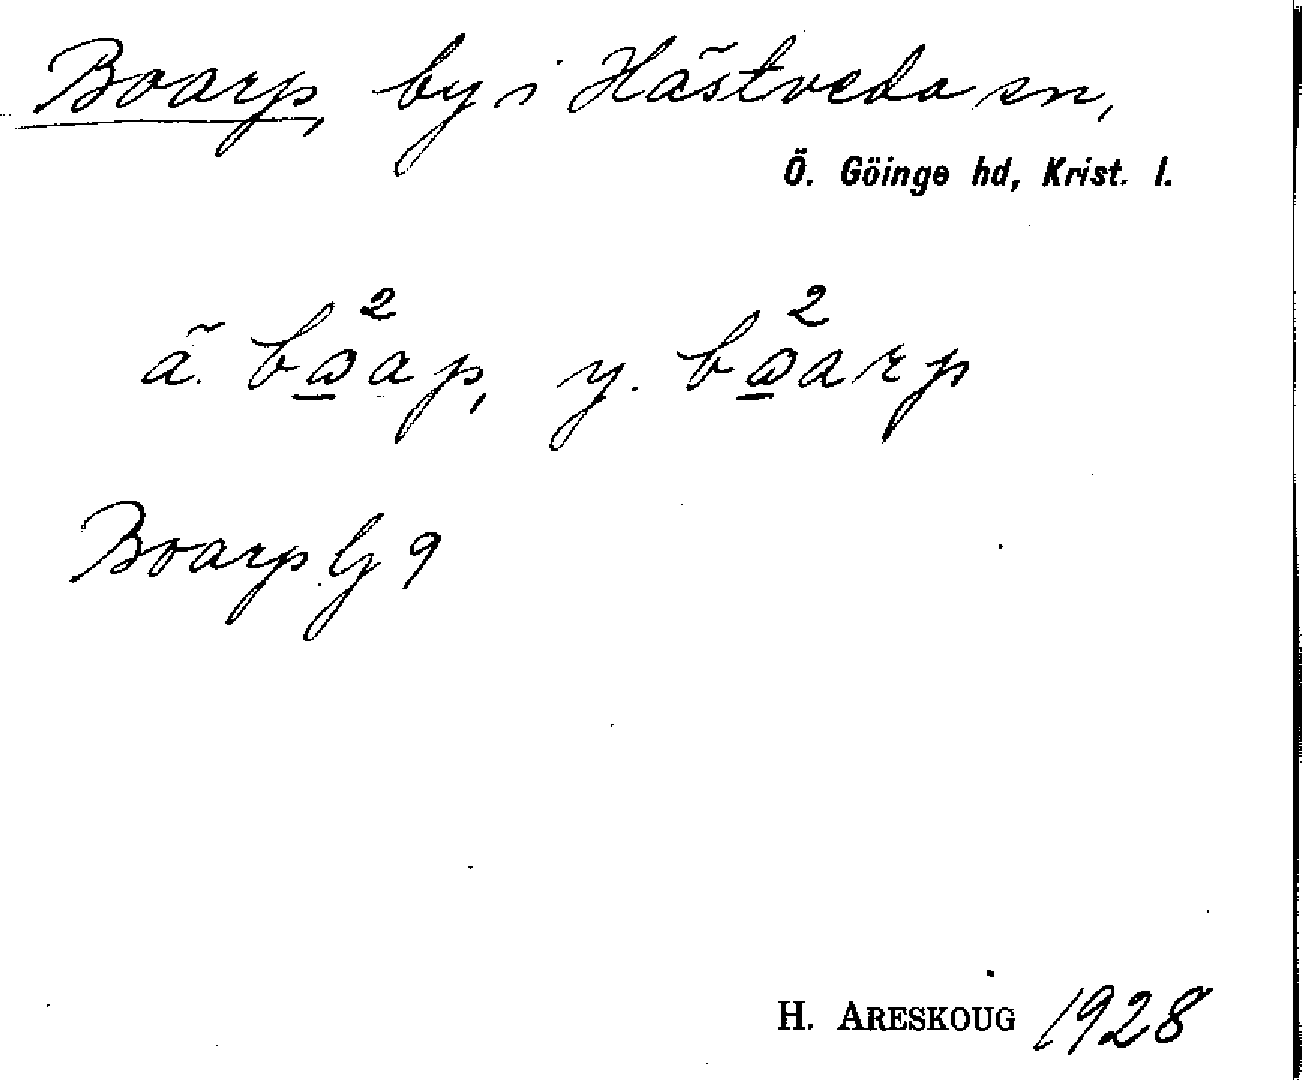 Boarp, by i Hästveda sn,
Ö. Göinge hd, Krist. l.
ä. bω̱²ap, y. bω̱²arp
Boarp G 9
H. ARESKOUG 1928